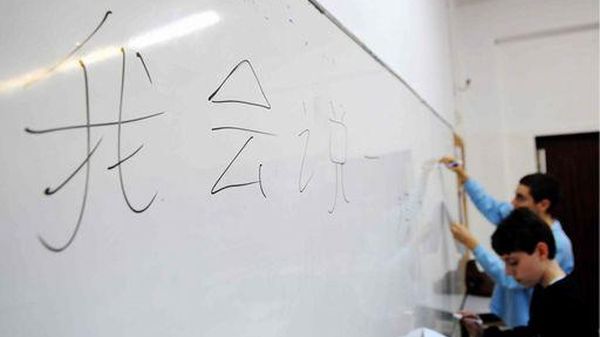 我会说一